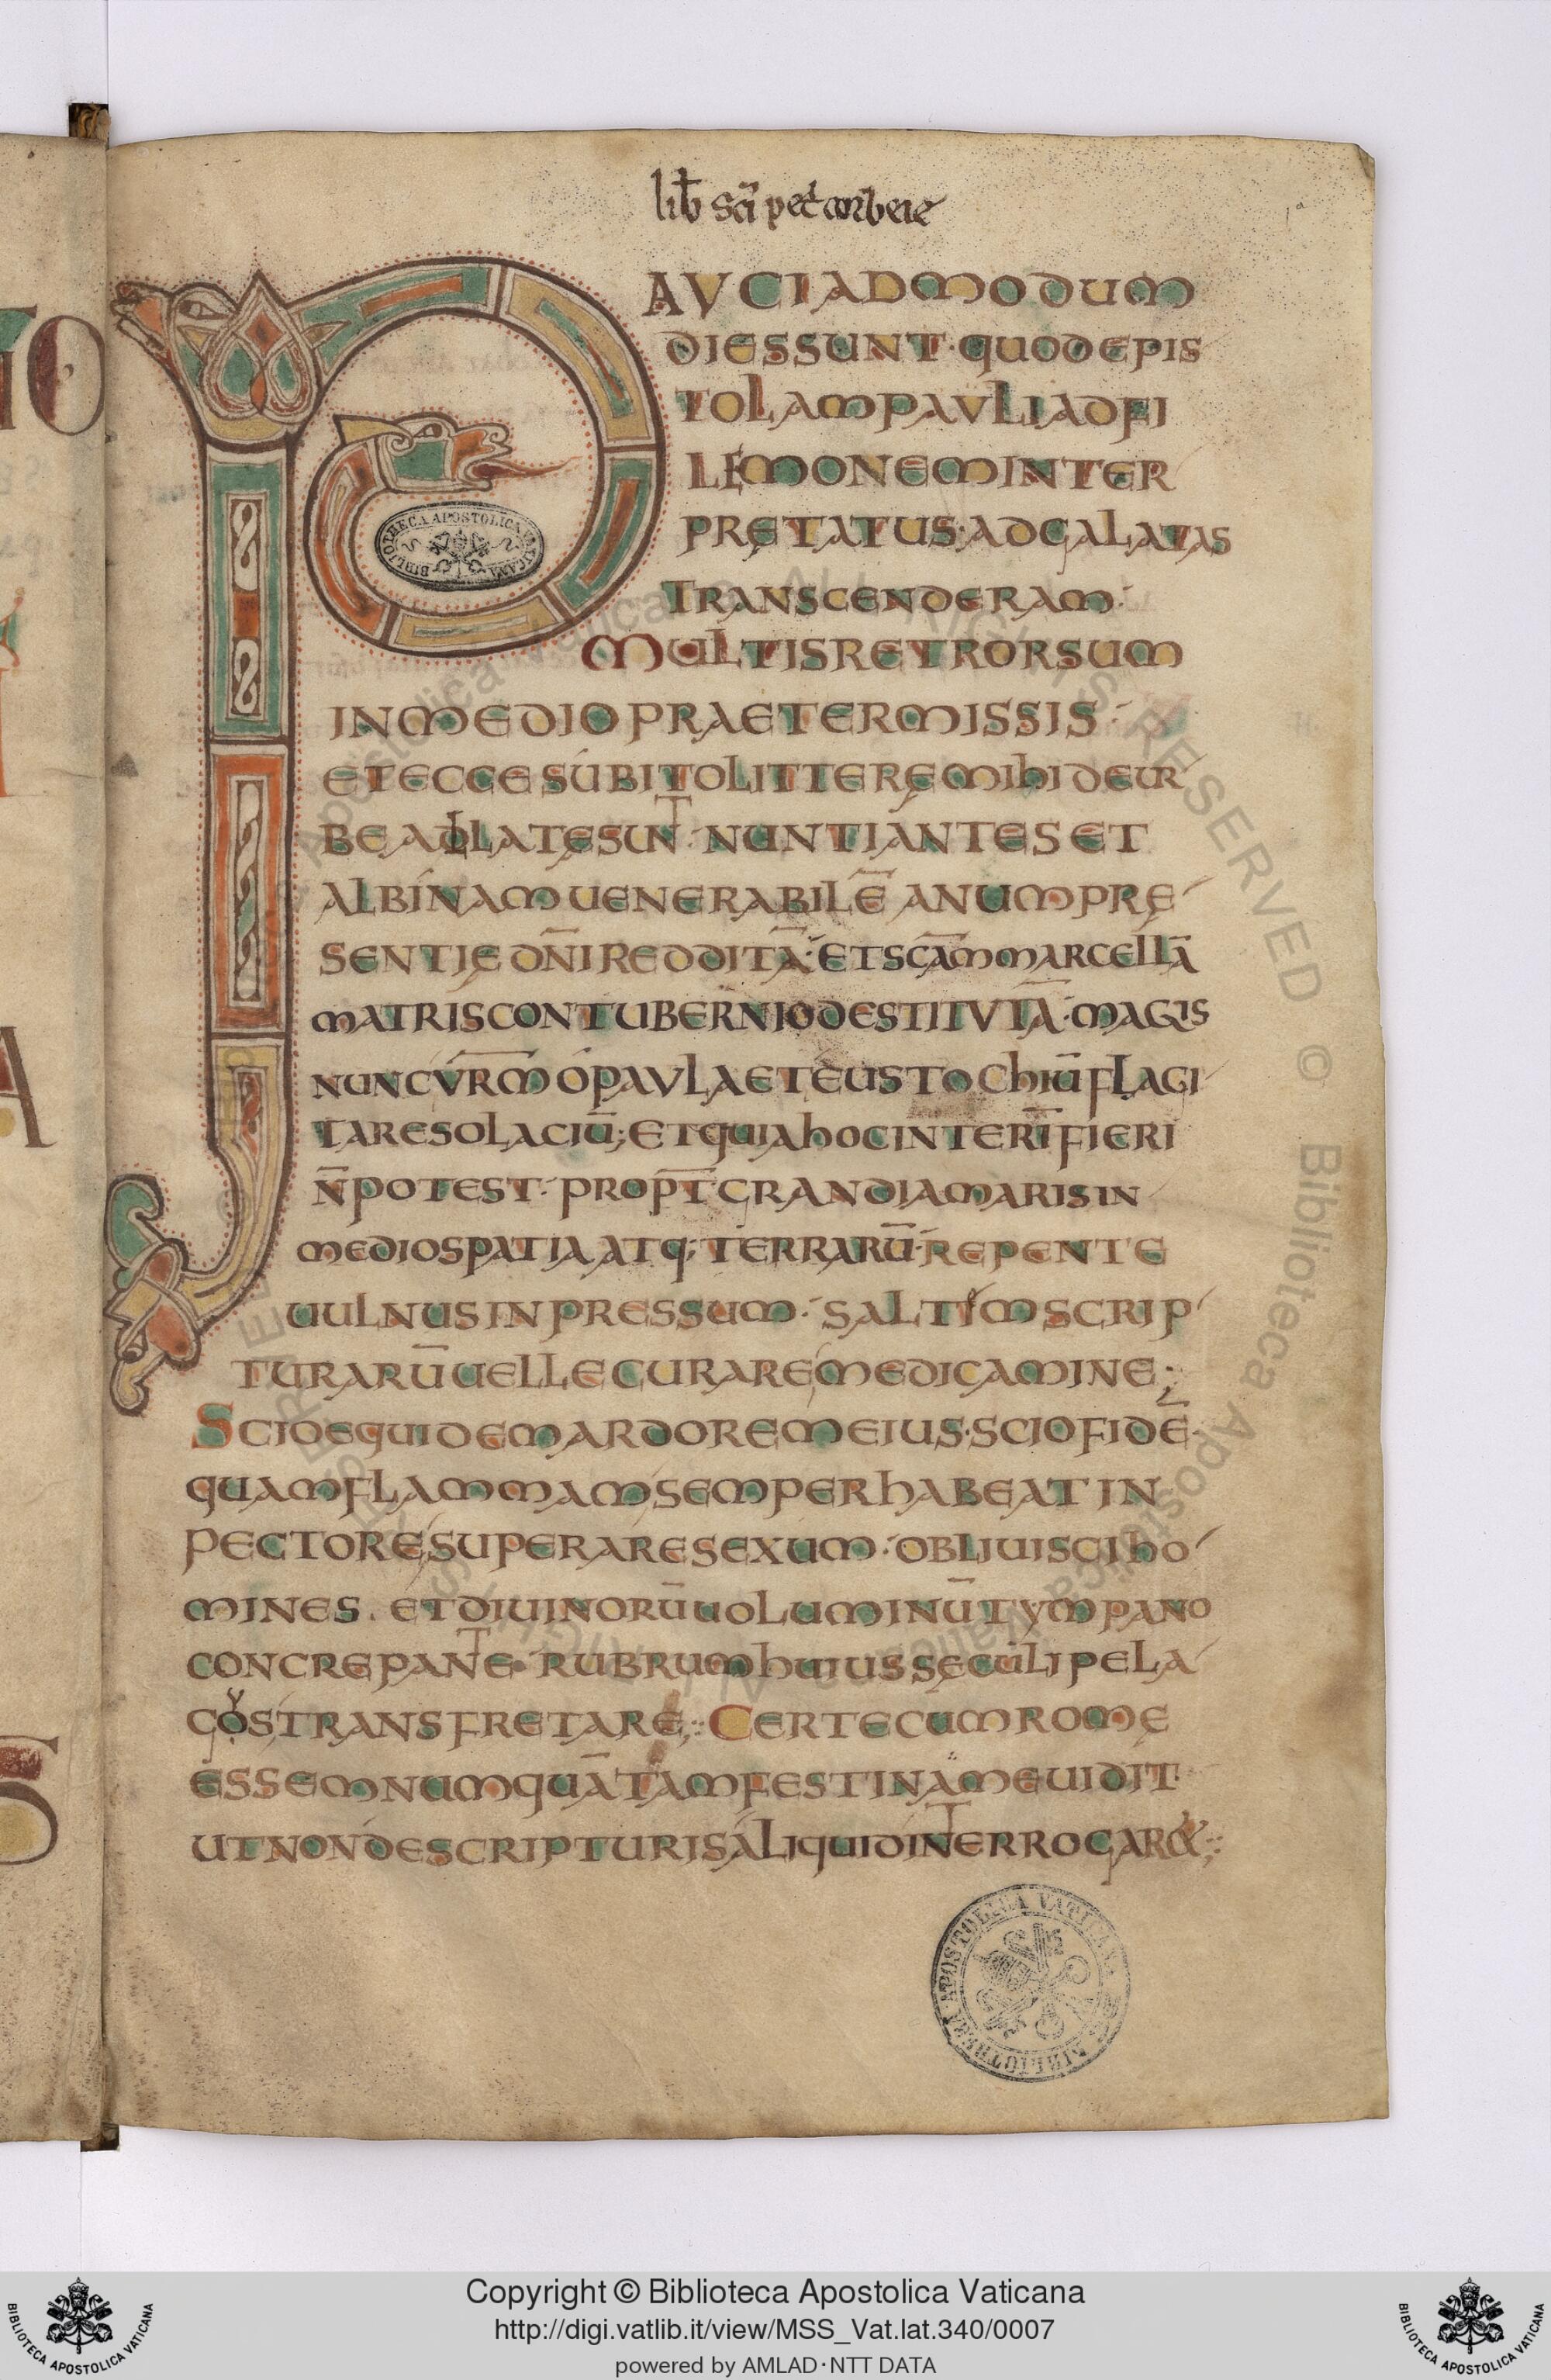 lib̄ sc̄i pet̄ corbeie
PAVCI ADMODUM
DIES SUNT· QUOD EPIS
TOLAM PAVLI AD FI
LEMONEM INTER
PRĘTATUS· AD GALATAS
TRANSCENDERAM·
MULTIS RETRORSUM
IN MEDIO PRAETERMISSIS·
ET ECCE SUBITO LITTERĘ MIHI DE UR
BE ADLATĘ SUNT· NUNTIANTES ET
ALBINAM UENERABILĒ ANUM PRĘ
SENTIĘ DN̄I REDDITĀ· ET SC̄AM MARCELLĀ
MATRIS CONTUBERNIO DESTITVTĀ· MAGIS
NUNC VR̄M O PAVLA ET EUSTOCHIŪ FLAGI
TARE SOLACIŪ; ET QUIA HOC INTERĪ FIERI
N̄ POTEST· PROPT̄ GRANDIA MARIS IN
MEDIO SPATIA ATQ; TERRARŪ· REPENTE
UULNUS INPRESSUM· SALTIM SCRIP
TURARŪ UELLE CURARE MEDICAMINE;
SCIO EQUIDEM ARDOREM EIUS· SCIO FIDĒ·
QUAM FLAMMAM SEMPER HABEAT IN
PECTORE SUPERARE SEXUM· OBLIUISCI HO
MINES· ET DIUINORŪ UOLUMINŪ TYMPANO
CONCREPANTE· RUBRUM HUIUS SĘCULI PELA
GOS TRANSFRETARE; CERTE CUM ROMĘ
ESSEM NUMQUĀ TAM FESTINA ME UIDIT·
UT NON DE SCRIPTURIS ALIQUID INTERROGAR&;
BIBLIOTHECA APOSTOLICA VATICANA
BIBLIOTHECA APOSTOLICA VATICANA
Biblioteca Apostolica Vaticana ALL RIGHTS RESERVED ©
Copyright © Biblioteca Apostolica Vaticana
http://digi.vatlib.it/view/MSS_Vat.lat.340/0007
powered by AMLAD·NTT DATA
BIBLIOTECA APOSTOLICA VATICANA
BIBLIOTECA APOSTOLICA VATICANA